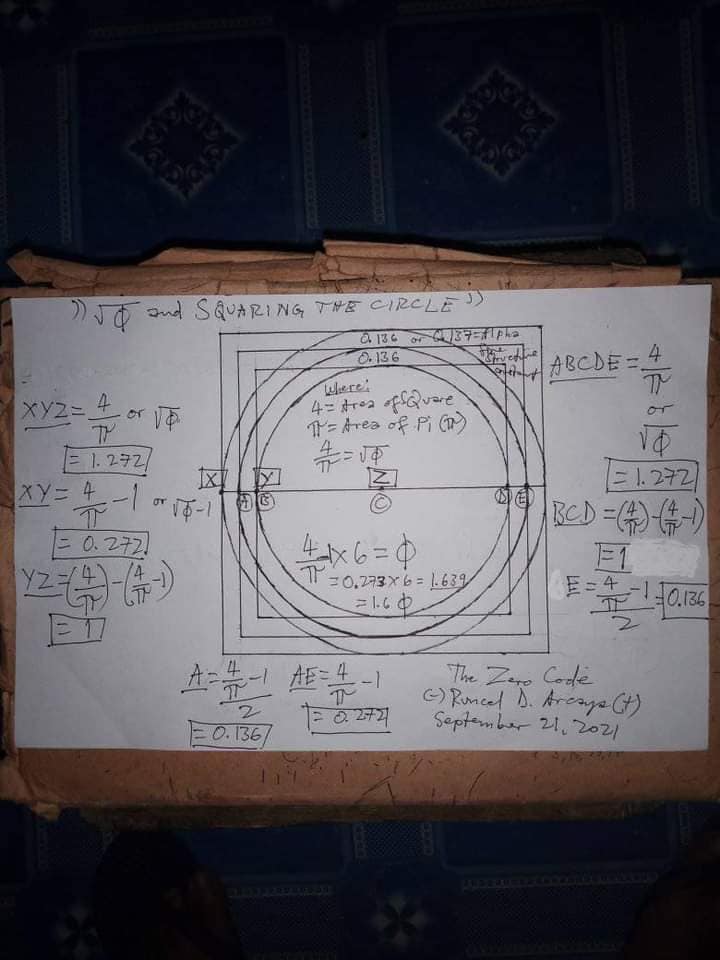 ")) √Φ and SQUARING THE CIRCLE))
0.136 or 0.137=Alpha
fine
structure
constant
0.136
Where:
4 = Area of SQuare
π = Area of Pi (π)
4/π = √Φ
XYZ = 4/π or √Φ
= 1.272
XY = 4/π -1 or √Φ-1
= 0.272
YZ = (4/π)-(4/π-1)
= 1
X Y Z
A B C D E
4/π -1 x 6 = Φ
= 0.273 x 6 = 1.639
= 1.6 Φ
ABCDE = 4/π
or
√Φ
= 1.272
BCD = (4/π)-(4/π-1)
= 1
E = 4/π -1/2 = 0.136
A = 4/π -1/2
= 0.136
AE = 4/π -1
= 0.272
The Zero Code
September 21, 2021